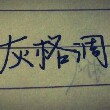 灰格调